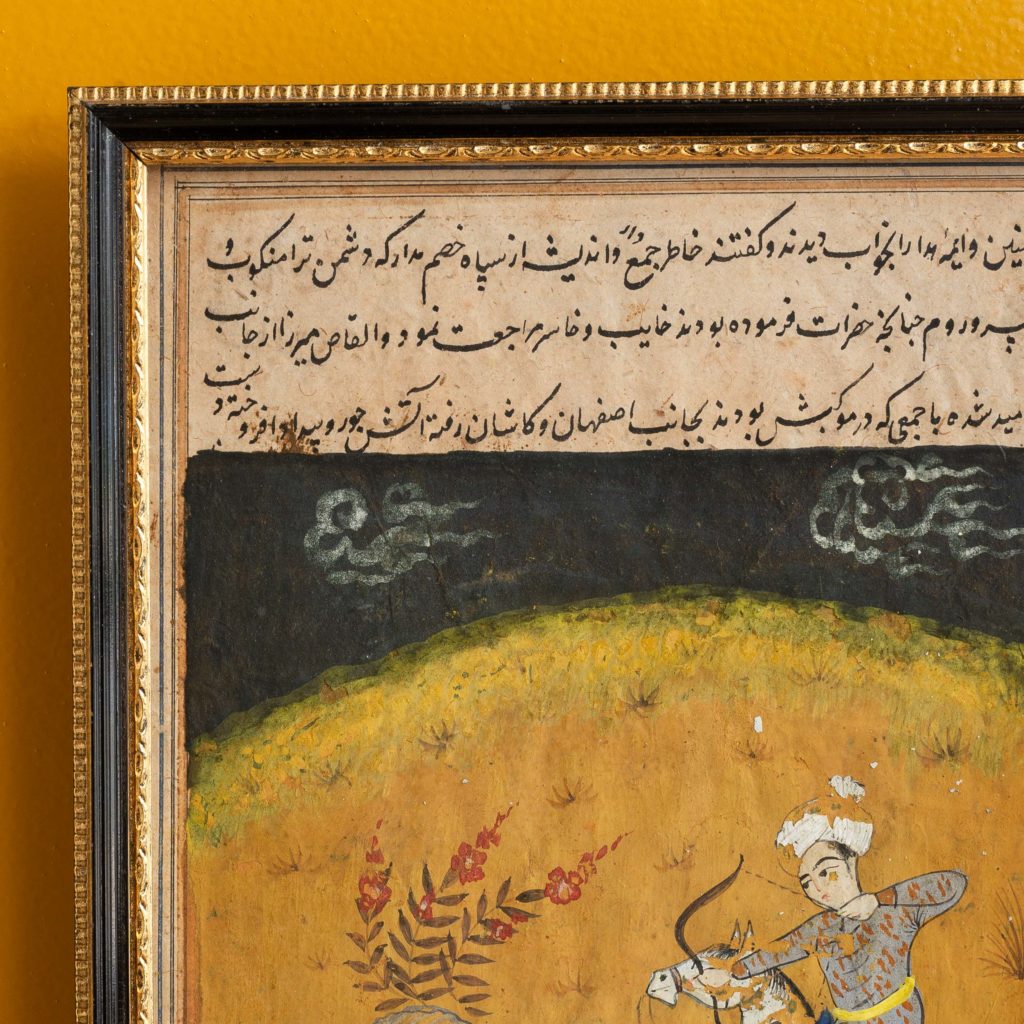 وایمهٔ هدا را بخواب دیدند و گفتند خاطر جمع دار و اندیشه از سپاه خصم مدار که دشمن ترا منکوب و
روم چنانچه حضرات فرموده بودند خایب و خاسر مراجعت نمود و القاص میرزا از جانب
شده با جمعی که در موکبش بودند بجانب اصفهان و کاشان رفته آتش جور و بیداد افروخته دست